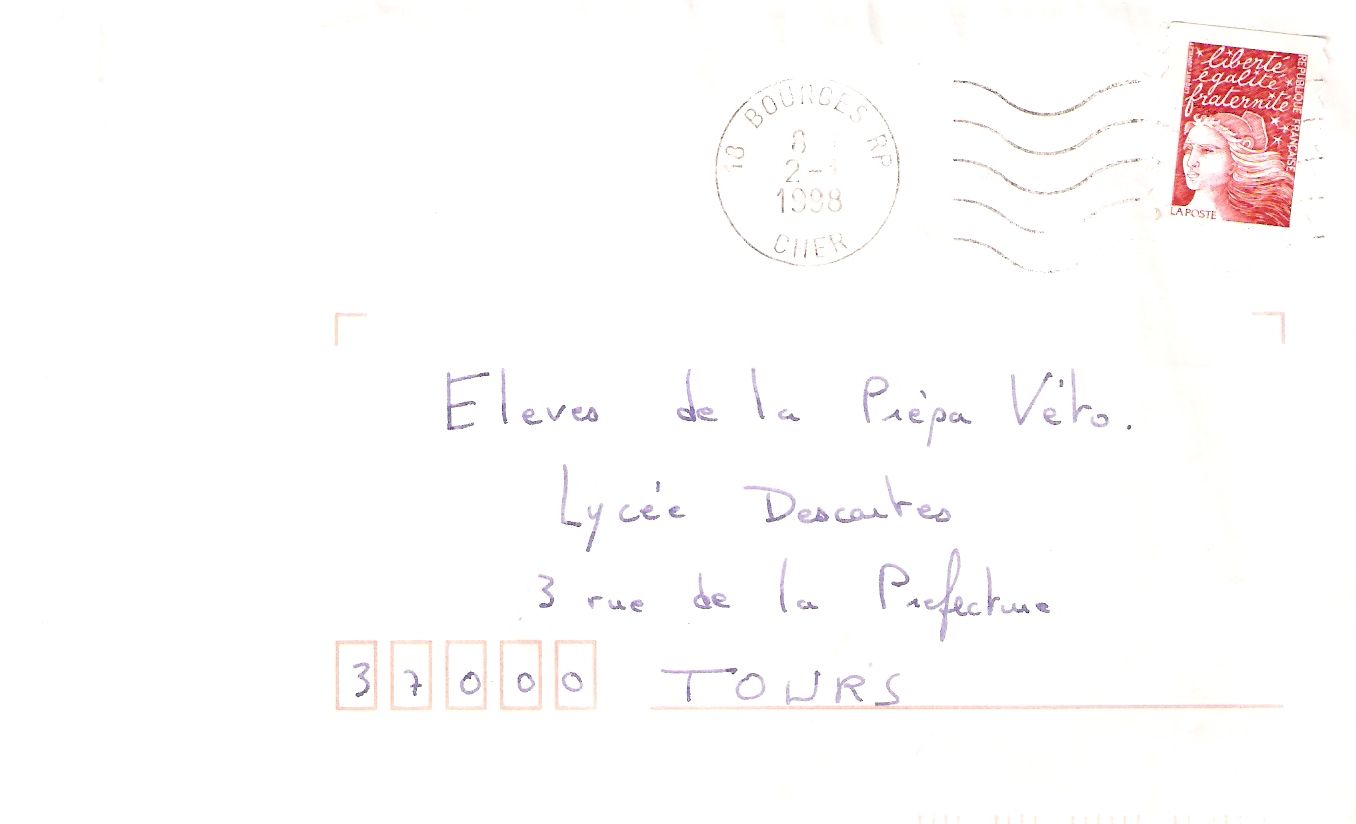 18 BOURGES RP
8
2-
1998
CHER
liberté
égalité
fraternité
RÉPUBLIQUE FRANÇAISE
LA POSTE
Eleves de la Prépa Véto.
Lycée Descartes
3 rue de la Prefecture
37000 TOURS